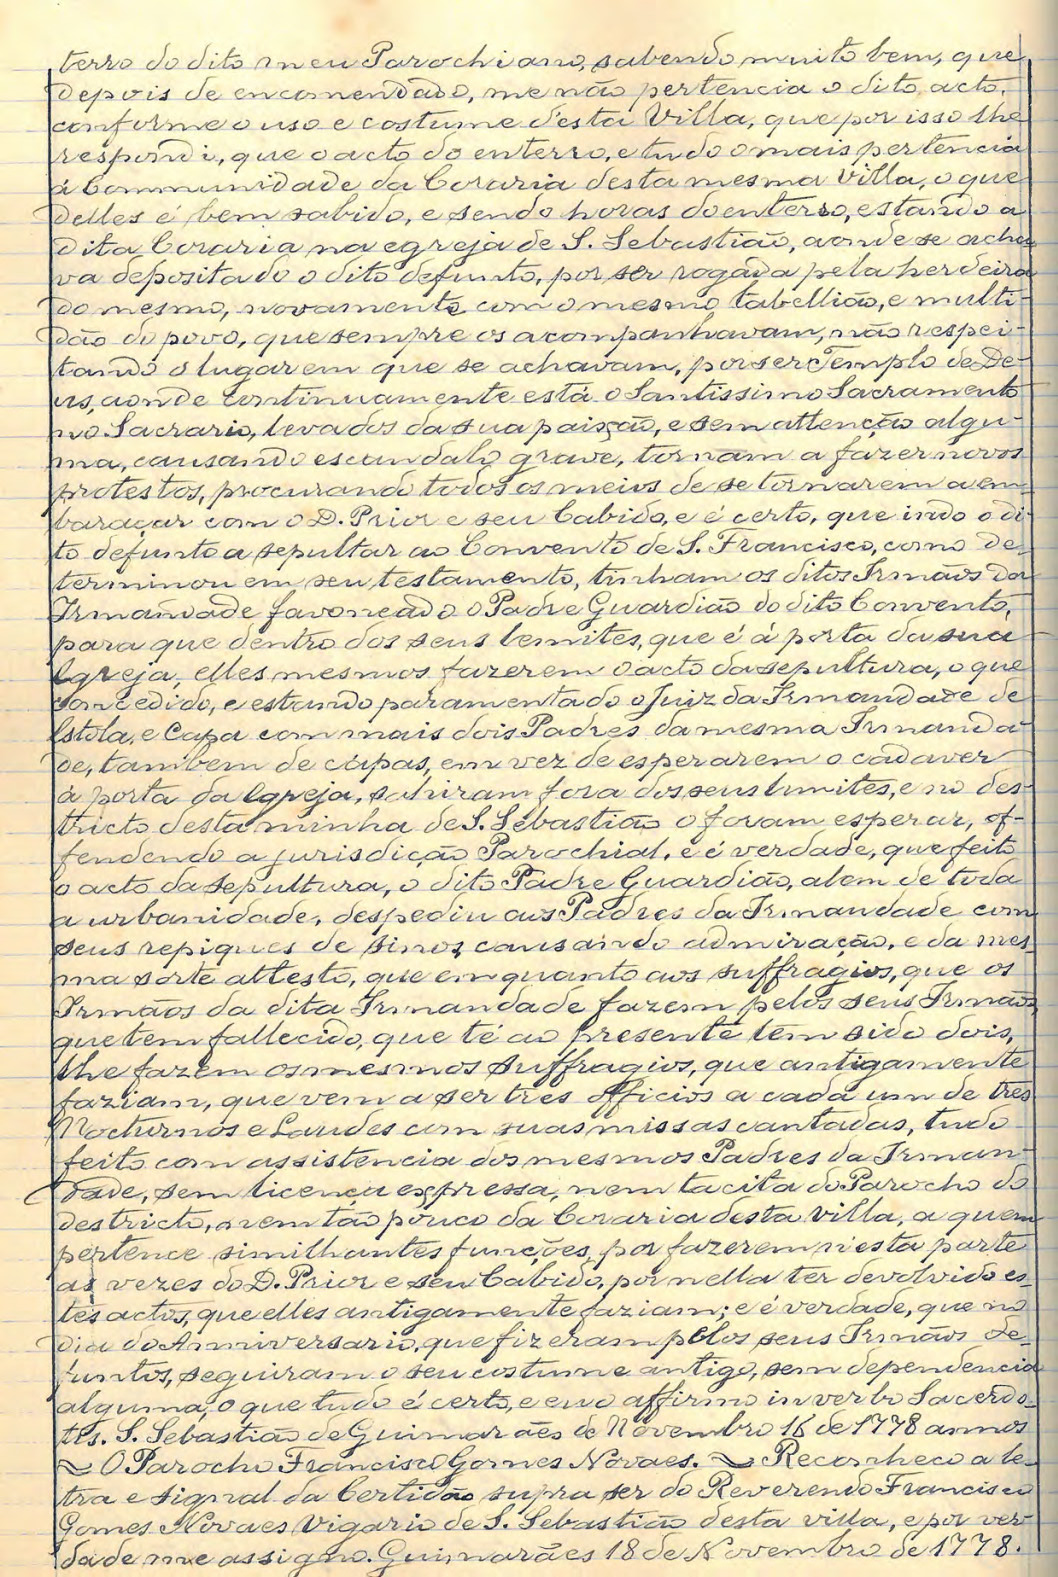 terro do dito meu Parochiano, sabendo muito bem, que
depois de encomendado, me não pertencia o dito acto,
conforme o uso e costume d'esta Villa, que por isso lhe
respondi, que o acto do enterro, e tudo o mais pertencia
á Communidade da Coraria desta mesma Villa, o que
delles é bem sabido, e sendo horas do enterro, estando a
dita Coraria na egreja de S. Sebastião, aonde se acha-
va depositado o dito defunto, por ser rogada pela herdeira
do mesmo, novamente com o mesmo tabellião, e multi-
dão do povo, que sempre os acompanhavam, não respei-
tando o lugar em que se achavam, por ser Templo de De-
us, aonde continuamente está o Santissimo Sacramento
no Sacrario, levados da sua paixão, e sem attenção algu-
ma, causando escandalo grave, tornam a fazer novos
protestos, procurando todos os meios de se tornarem a em-
baraçar com o D. Prior e seu Cabido, e é certo, que indo o di-
to defunto a sepultar ao Convento de S. Francisco, como de-
terminou em seu testamento, tinham os ditos Irmãos da
Irmandade favoneado o Padre Guardião do dito Convento,
para que dentro dos seus lemites, que é á porta da sua
Egreja, elles mesmos fazerem o acto da sepultura, o que
concedido, e estando paramentado o Juiz da Irmandade de
Estola, e Capa com mais dois Padres da mesma Irmanda-
de, tambem de cápas, em vez de esperarem o cadaver
á porta da Egreja, sahiram fora dos seus limites, e no des-
tricto desta minha de S. Sebastião o foram esperar, of-
fendendo a jurisdicção Parochial, e é verdade, que feito
o acto da sepultura, o dito Padre Guardião, alem de toda
a urbanidade, despediu aos Padres da Irmandade com
seus repiques de sinos, causando admiração, e da mes-
ma sorte attesto, que emquanto aos suffragios, que os
Irmãos da dita Irmandade fazem pelos seus Irmãos
que tem fallecido, que té ao presente tem sido dois,
lhe fazem os mesmos suffragios, que antigamente
faziam, que vem a ser tres Officios a cada um de tres
Nocturnos e Laudes com suas missas cantadas, tudo
feito com assistencia dos mesmos Padres da Irman-
dade, sem licença expressa, nem tacita do Parocho do
destricto, nem tão pouco da Coraria desta Villa, a quem
pertence similhantes funções, por fazerem n'esta parte
as vezes do D. Prior e seu Cabido, por nella ter devolvido es-
tes actos, que elles antigamente faziam; e é verdade, que no
dia do Anniversario, que fizeram pelos seus Irmãos de-
funtos, seguiram o seu costume antigo, sem dependencia
alguma, o que tudo é certo, e eu o affirmo in verbo Sacerdo-
tis. S. Sebastião de Guimarães de Novembro 16 de 1778 annos
~ O Parocho Francisco Gomes Novaes. ~ Reconheco a le-
tra e signal da Certidão supra ser do Reverendo Francisco
Gomes Novaes Vigario de S. Sebastião desta villa, e por ver-
dade me assigno. Guimarães 18 de Novembro de 1778.